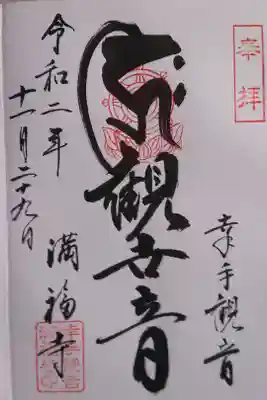 奉拝
幸手観音
観世音
満福寺
令和二年
十一月二十九日